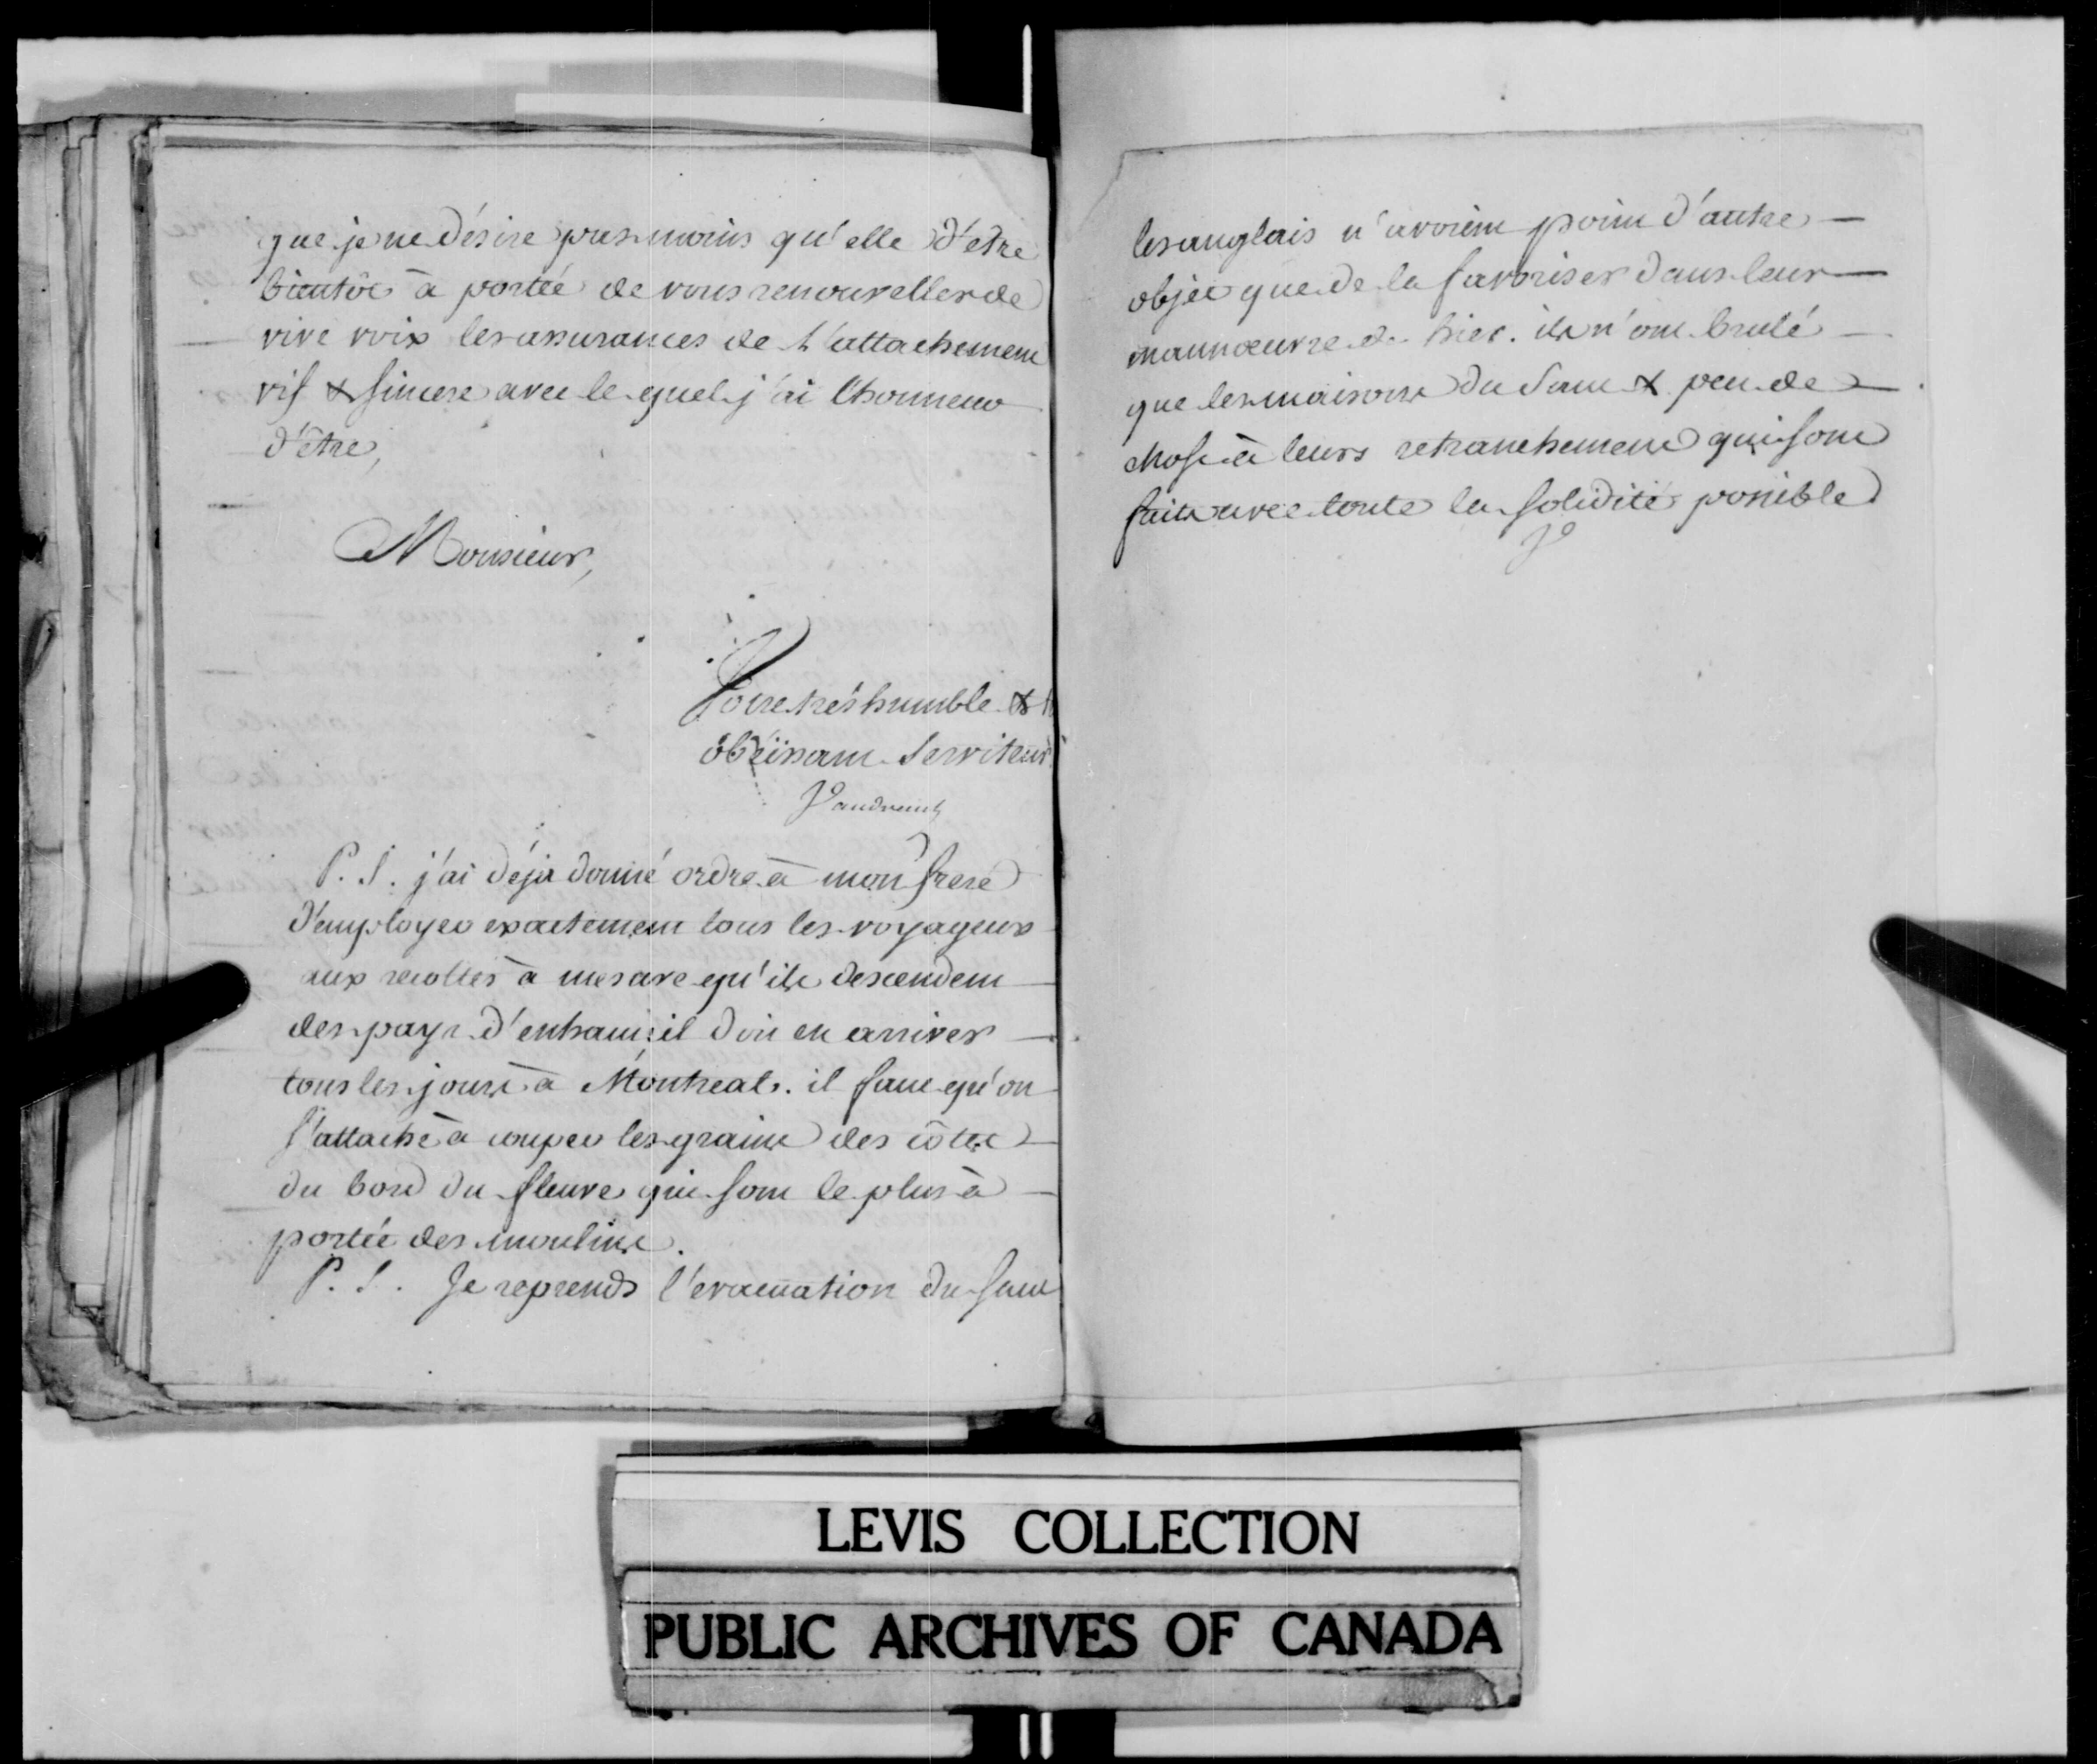 que je ne désire pas moins qu'elle d'etre
bientôt à portée de vous renouveller de
vive voix les assurances de l'attachement
vif & sincere avec le quel j'ai l'honneur
d'être,
Monsieur,
Votre trés humble &
obéissant Serviteur
Vaudreuil
P. S. j'ai déja donné ordre à mon frere
d'employer exactement tous les voyageurs
aux recoltes à mesure qu'ils descendent
des pays d'enhaut; il doit en arriver
tous les jours à Montreal. il faut qu'on
s'attache à couper les grains des côtes
du bord du fleuve qui sont le plus à
portée des moulins.
P. S. Je reprends l'evacuation du Saut
les anglais n'avoient point d'autre
objet que de la favoriser dans leur
mannoeuvre de hier. ils n'ont brulé
que les maisons du Saut & peu de
chose à leurs retranchemens qui sont
faits avec toute la solidité possible
V
LEVIS COLLECTION
PUBLIC ARCHIVES OF CANADA